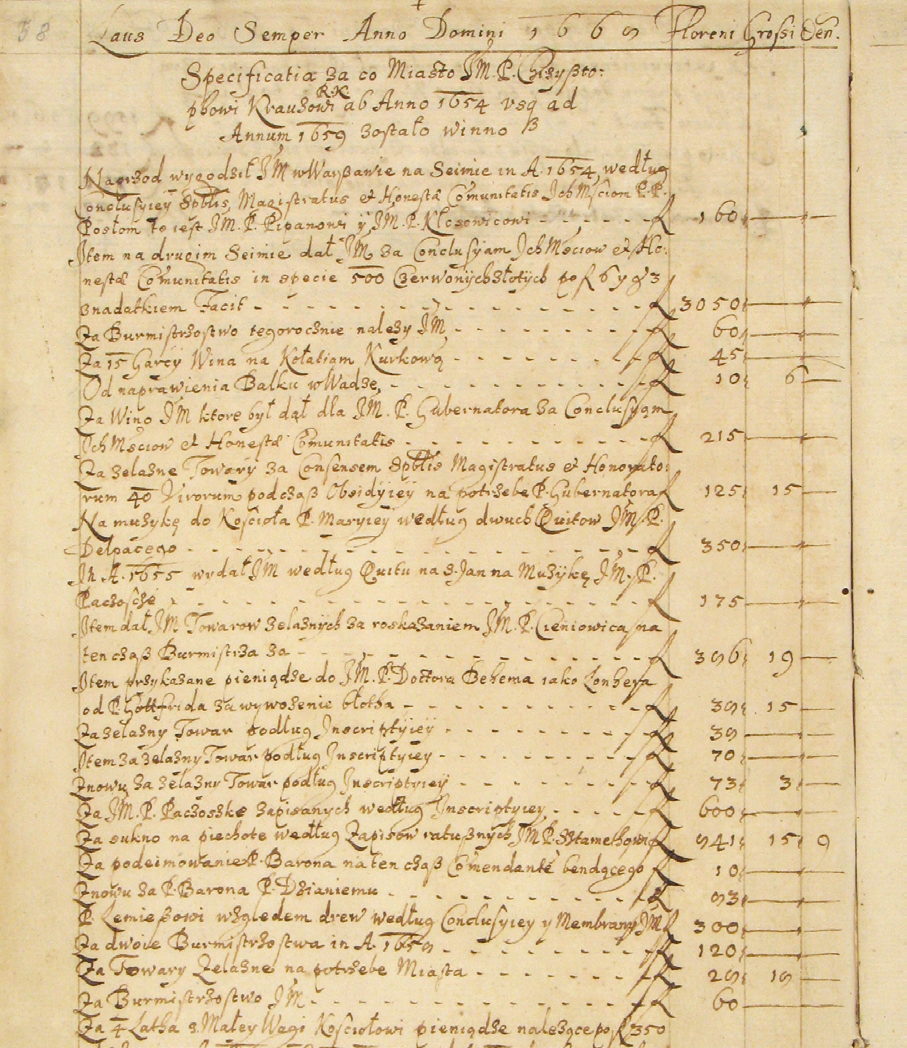 38 Laus Deo Semper Anno Domini 1669 Floreni Grossi Den.
Specificatia za co Miasto JM. P. Chrzyszto:
phowi Krauzowi RK ab Anno 1654 usq ad
Annum 1659 zostało winno ß
Naprzod wygodził JM w Warszawie na Seimie in A. 1654, według
Conclusyiey Spblis, Magistratus et Honestæ Comunitatis Ich Msciom P.P.
Posłom to iest JM. P. Pipanowi y JM. P. Kłosowicowi - - - - - fl 160
Item na drugim Seimie dał JM za Conclusyam Ich Msciow et Ho:
nestæ Comunitatis in specie 500 Czerwonych złotych po fl 6 y gr 3
z nadatkiem Facit - - - - - - - - - - - - - fl 3050
Za Burmistrzostwo tegorocznie należy JM - - - - - - - - fl 60
Za 15 Garcy Wina na Kolatiam Kurkową - - - - - - - - fl 45
Od naprawienia Balku w Wadze, - - - - - - - - - - fl 10 6
Za Wino JM ktore był dał dla JM. P. Gubernatora za Conclusyam
Ich Msciow et Honestæ Comunitatis - - - - - - - - - - fl 215
Za zelazne Towary za Consensem Spblis Magistratus et Honorato:
rum 40 Virorum podczaß Obsidyiey na potrzebe P. Gubernatora fl 125 15
Na muzykę do Kościoła P. Maryiey według dwuch Quitow JM. P.
Delpacego - - - - - - - - - - - - - - - - fl 350
In A. 1655 wydał JM według Quitu na S. Jan na Muzykę JM. P.
Pachoschę - - - - - - - - - - - - - - - - fl 175
Item dał JM Towarow zelaznych za roskazaniem JM. P. Cieniowica na
ten czaß Burmistrza za - - - - - - - - - - - - fl 396 19
Item przykazane pieniądze do JM. P. Doctora Behema iako Lonhera
od P. Gottfrida za wywozenie błotha - - - - - - - - - fl 39 15
Za zelazny Towar podług Inscriptyiey - - - - - - - - fl 39
Item za zelazny Towar podług Inscriptyiey - - - - - - - fl 70
Znowu za zelazny Towar podług Inscriptyiey - - - - - - - fl 73 3
Za JM. P. Pachoskę zapisanych według Inscriptyiey - - - - fl 600
Za sukno na piechote według Zapisow ratusznych JM. P. fl 941 15 9
Za podeimowanie P. Barona na ten czaß Comendantę bendącego fl 10
Znowu za P. Barona P. Dzianiemu - - - - - - - - - fl 93
P. Lemieszowi względem drew według Conclusyiey y Membrany JM fl 300
Za dwoie Burmistrzostwa in A. 1659 - - - - - - - - - fl 120
Za Towary Zelazne na potrzebe Miasta - - - - - - - - fl 29 19
Za Burmistrzostwo JM - - - - - - - - - - - - - fl 60
Za 4 Latha z Małey Wagi Kościołowi pieniądze nalezące po fl 350